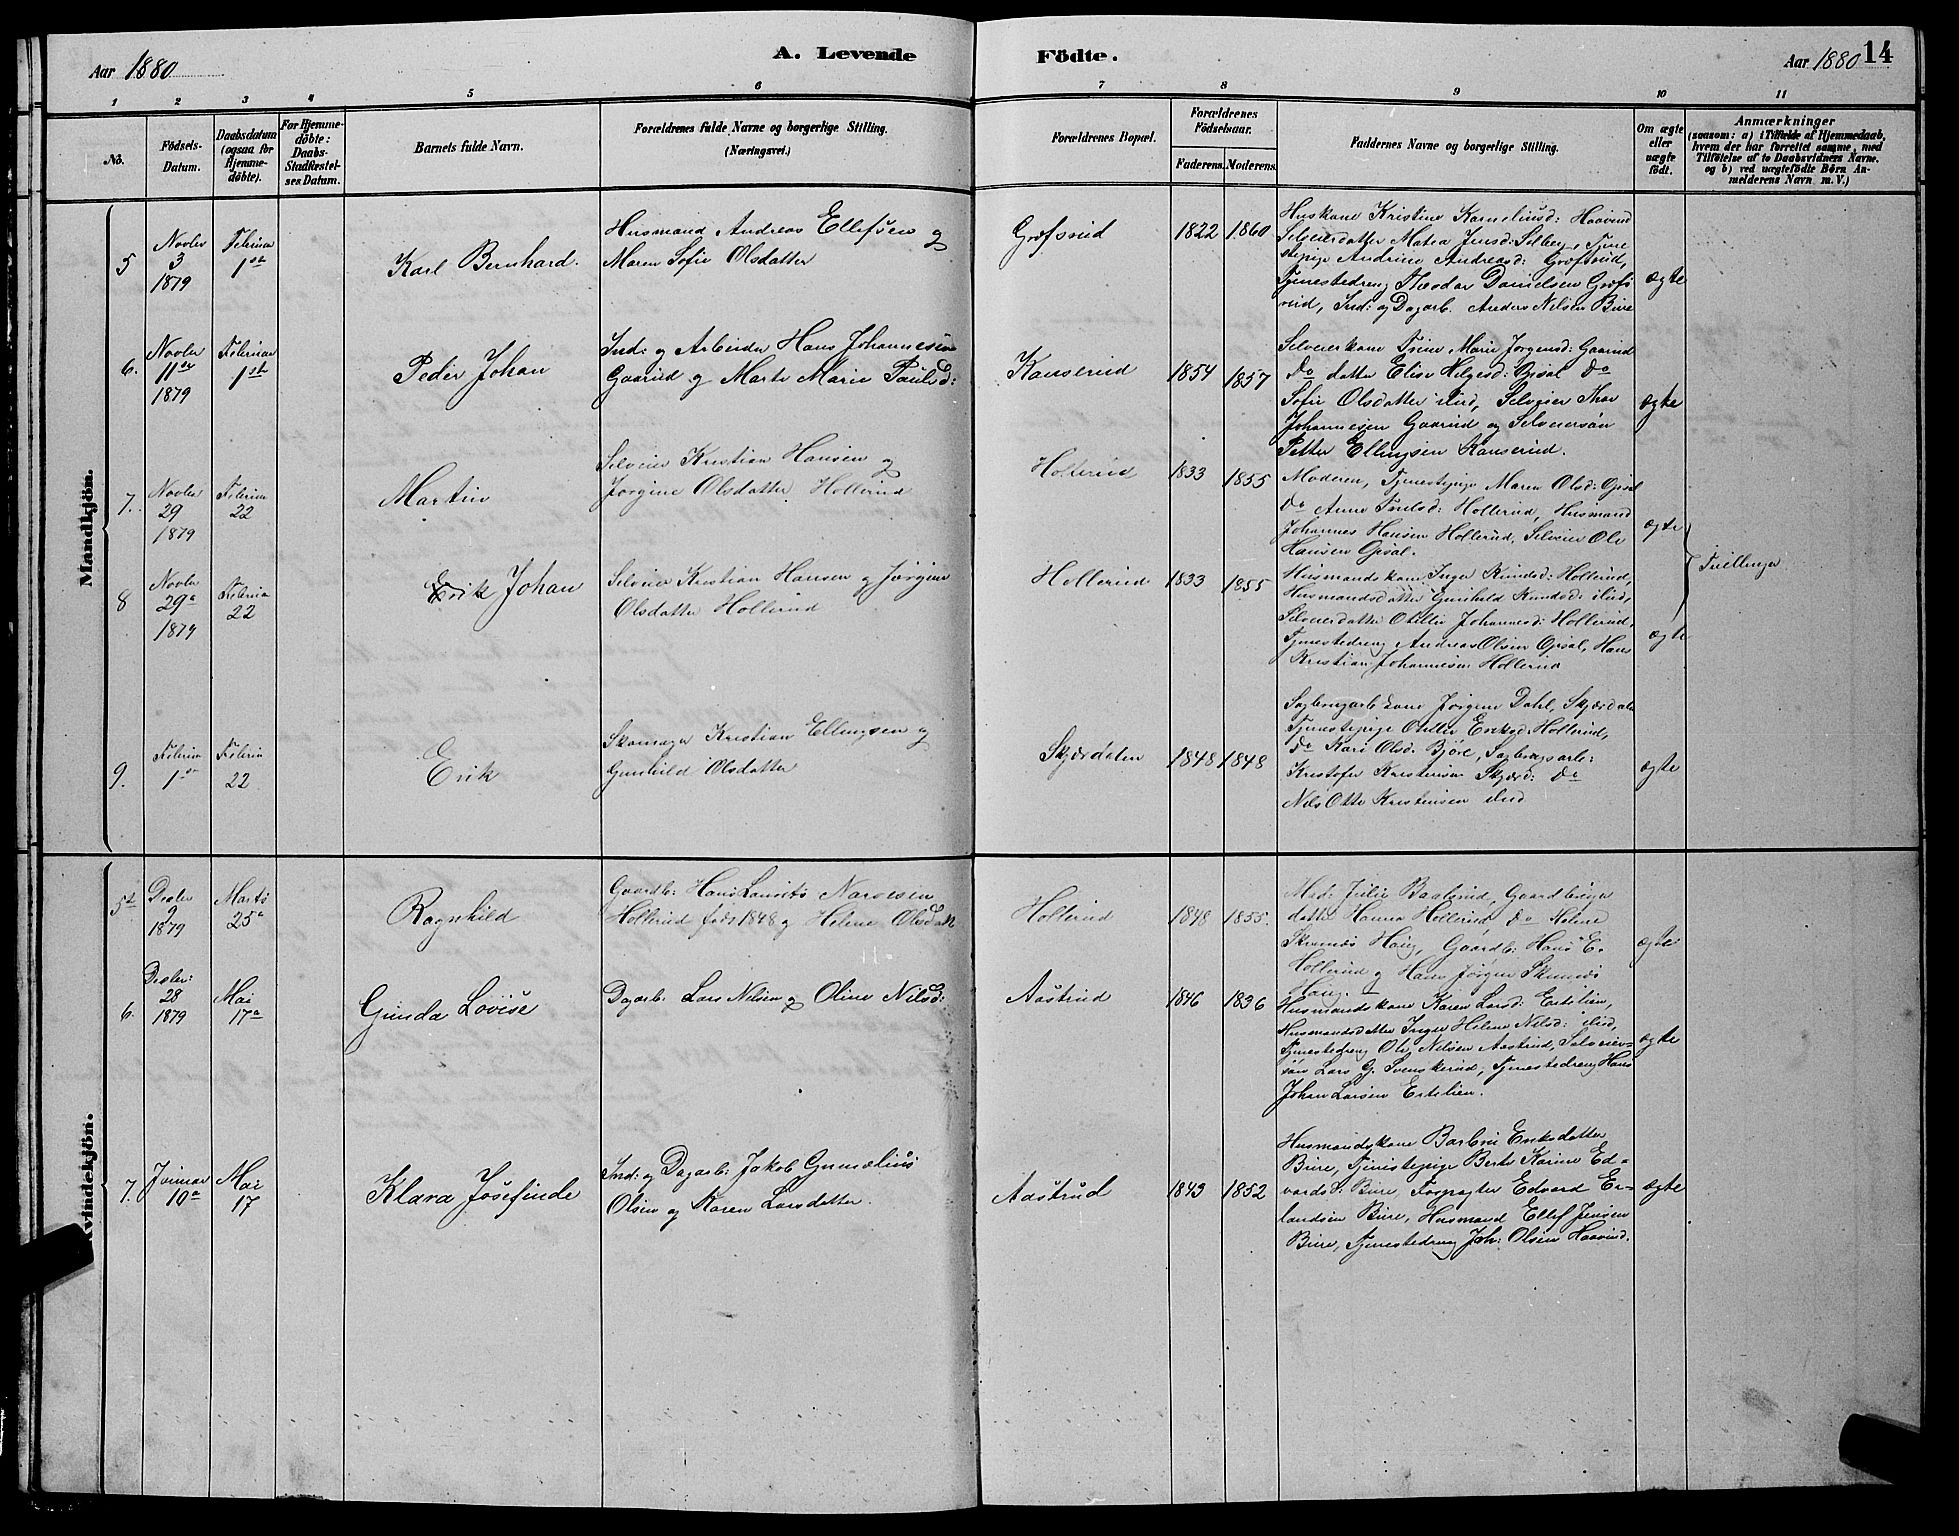 A. Levende Födte.
Aar 1880
Aar 1880 14
1 2 3 4 5 6 7 8 9 10 11
No.
Födsels-
Datum.
Daabsdatum
(ogsaa for
Hjemme-
döbte).
For Hjemme-
döbte:
Daabs-
Stadfæstel-
ses Datum.
Barnets fulde Navn.
Forældrenes fulde Navne og borgerlige Stilling.
(Næringsvei.)
Forældrenes Bopæl.
Forældrenes
Födselsaar.
Faderens. Moderens.
Faddernes Navne og borgerlige Stilling.
Om ægte
eller
uægte
födt.
Anmærkninger
(saasom: a) i Tilfælde af Hjemmedaab,
hvem der har forrettet samme, med
Tilföielse af to Daabsvidners Navne.
og b) ved uægtefödte Börn An-
melderens Navn m. V.)
Mandkjön.
5
Novbr
3
1879
Februar
1
Karl Bernhard.
Husmand Andreas Ellefsen og
Maren Sofie Olsdatter
Grøfsrud
1822 1860
Huskone Kristine Korneliusd: Haavind
Selveierdatter Matea Jensd: Selberg, Tjene
stepige Andrine Andreasd: Grøfsrud,
Tjenestedreng Theodor Danielsen Grøfs
rud, Ind: og Dagarb. Anders Nilsen Bure
ægte
6.
Novbr
11
1879
Februar
1ste
Peder Johan
Ind: og Arbeider Hans Johannesen
Gaarud og Marte Marie Paulsd:
Kanserud
1854 1857
Selveierkone Trine Marie Jørgensd: Gaarud
Do datter Elise Helgesd: Opsal Do
Sofie Olsdatter ibid, Selveier Thor
Johannesen Gaarud og Selveiersøn
Petter Ellingsen Kanserud.
ægte
7.
Novbr
29
1879
Februar
22
Martin
Selveier Kristian Hansen og
Jørgine Olsdatter Hollerud
Hollerud
1833 1855
Moderen, Tjenestepige Maren Olsd: Opsal
Do Anne Truelsd: Hollerud, Husmand
Johannes Hansen Hollerud, Selveier Ole
Hansen Opsal.
ægte
Tvillinger
8
Novbr
29
1879
Februar
22
Erik Johan
Selveier Kristian Hansen og Jørgine
Olsdatter Hollerud
Hollerud
1833 1855
Husmandskone Inger Knudsd: Hollerud,
Husmandsdatter Gunhild Knudsd: ibid,
Selveierdatter Otilie Johannesd: Hollerud,
Tjenestedreng Andreas Olsen Opsal, Hans
Kristian Johannesen Hollerud
ægte
9.
Februar
1
Februar
22
Erik
Skomager Kristian Ellingsen og
Gunhild Olsdatter
Skjærdalen
1848 1848
Sagbrugsarb kone Jørgine Dahl, Skjærdalen
Tjenestepige Otilie Eriksd: Hollerud,
Do Kari Olsd: Björe, Sagbrugsarb:
Kristofer Kristensen Skjærd: Do
Nils Otto Kristensen ibid
ægte
Kvindekjön.
5te
Decbr
9
1879
Marts
25
Ragnhild
Gaardb: Hans Laurits Narvesen
Hollerud født 1848 og Helene Olsdatt
Hollerud
1848 1855.
Mad: Julie Baalerud, Gaardbruger
datter Hanna Hollerud Do Helene
Skumnæs Haug, Gaardb: Hans E.
Hollerud og Hans Jørgen Skumnæs
Haug.
ægte
6.
Decbr:
28
1879
Mai
17
Gunda Lovise
Dagarb: Lars Nilsen og Oline Nilsd:
Aastrud
1846 1836
Husmandskone Karen Larsd: Ertelien,
Husmandsdatter Inger Helene Nilsd: ibid,
Tjenestedreng Ole Nilsen Aastrud, Selveier=
søn Lars G. Svenskerud, Tjenestedreng Hans
Johan Larsen Ertelien.
ægte
7.
Januar
10
Mai
17
Klara Josefinde
Ind: og Dagarb: Jakob Gunelius
Olsen og Karen Larsdatter.
Aastrud
1843 1852
Husmandskone Barbro Eriksdatter
Bure, Tjenestepige Berte Karine Ed=
vardsd: Bure, Forpagter Edvard Er=
landsen Bure, Husmand Ellef Jensen
Bure, Tjenestedreng Joh: Olsen Haavind.
ægte